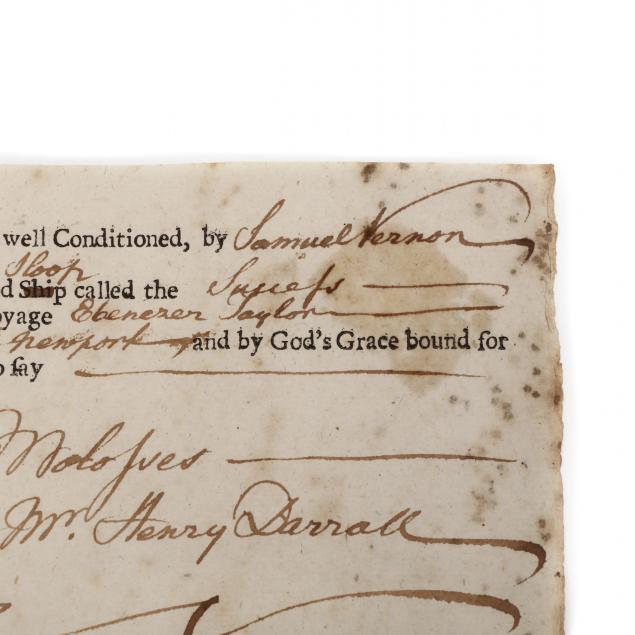 well Conditioned, by Samuel Vernon
Sloop
d Ship called the Success
oyage Ebenezer Taylor
newport and by God's Grace bound for
o say
Molosses
Mr. Henry Darrall